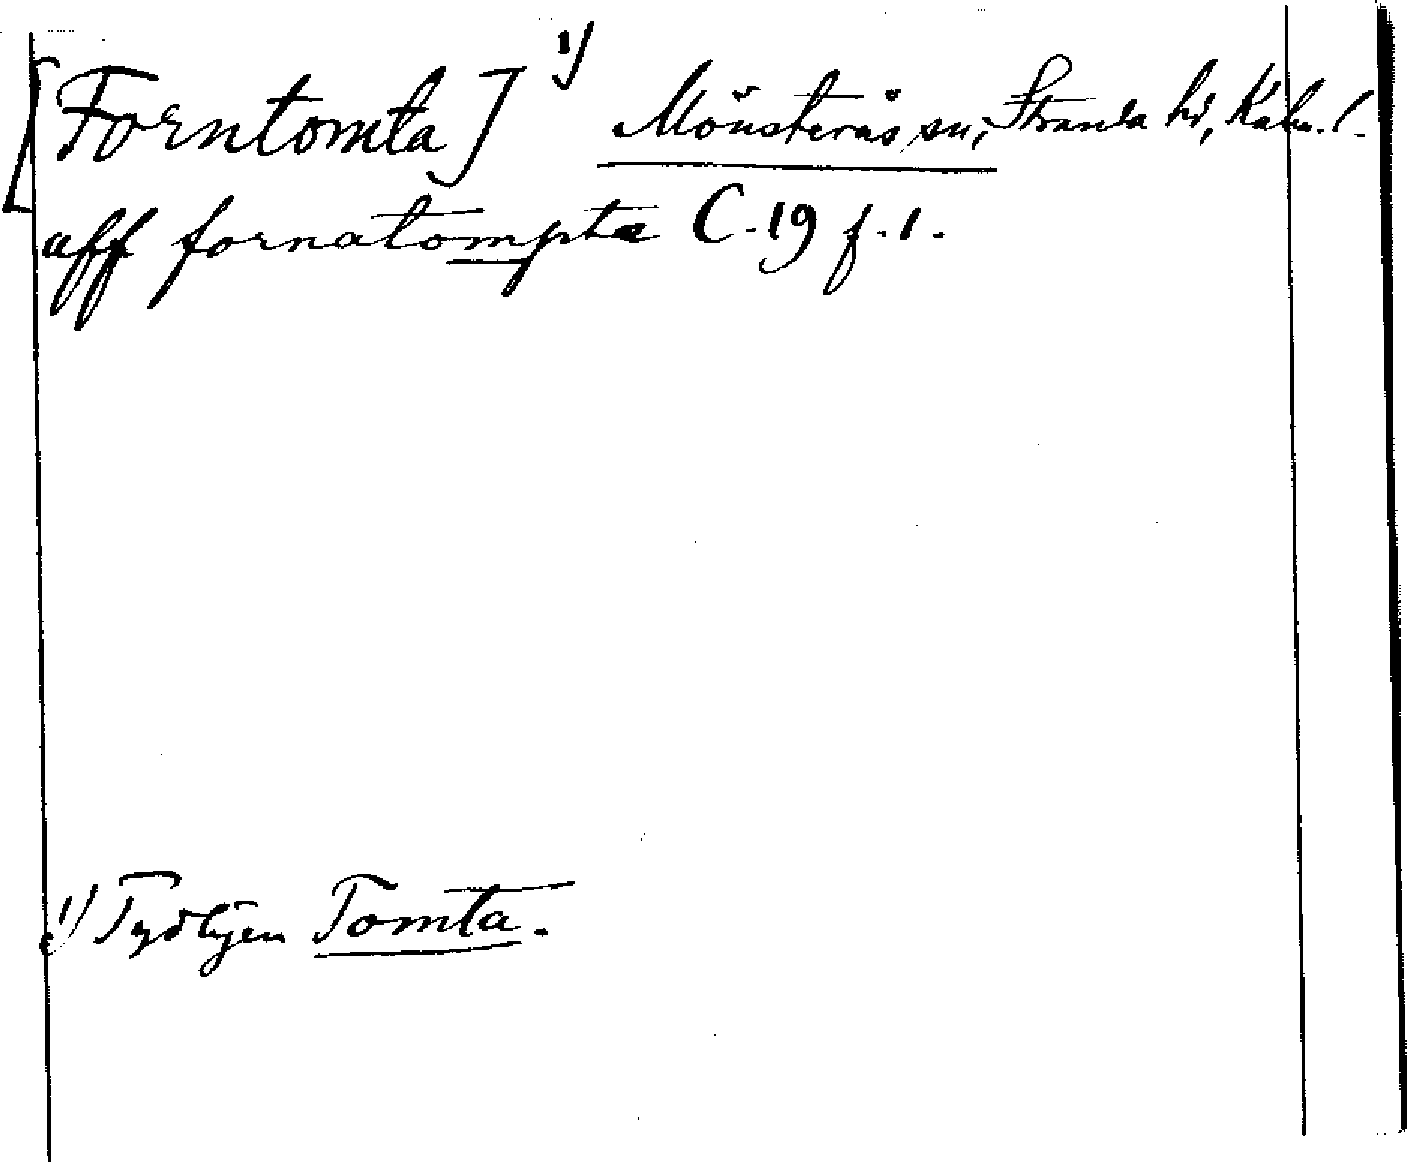 [Forntomta] 1) Mönsterås sn, Stranda hd, Kalm. l.
aff fornatompta C. 19 f. 1.
1) Tydligen Tomta.